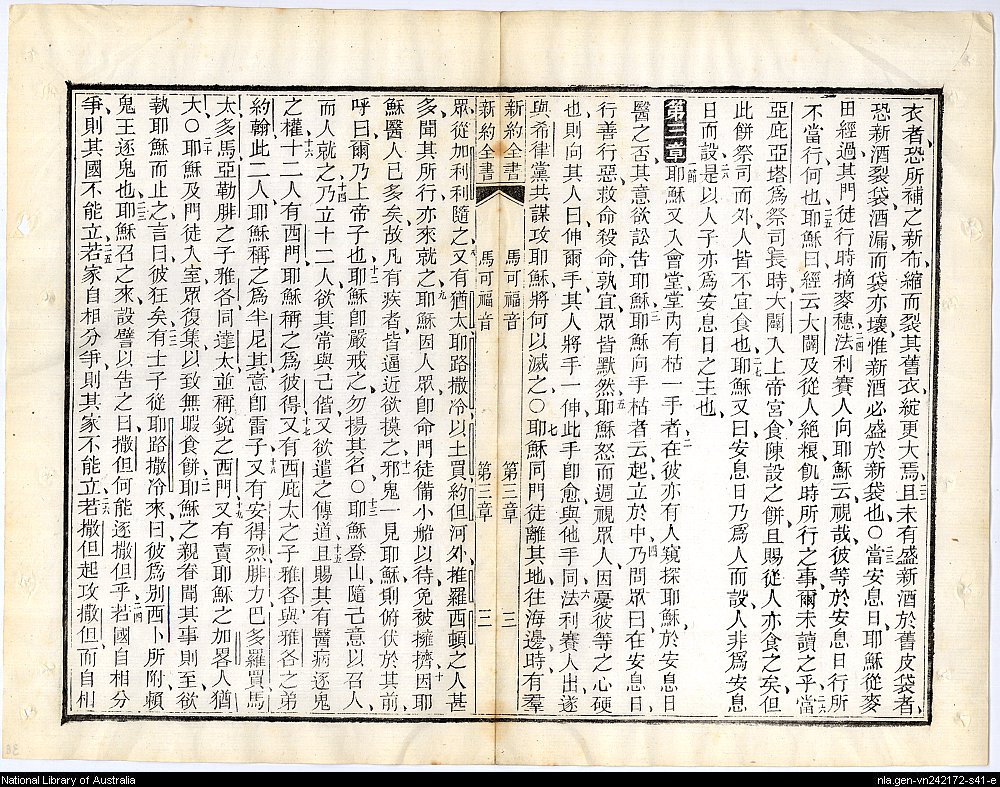 衣者恐所補之新布縮而裂其舊衣綻更大焉且未有盛新酒於舊皮袋者
恐新酒裂袋酒漏而袋亦壞惟新酒必盛於新袋也○當安息日耶穌從麥
田經過其門徒行時摘麥穗法利賽人向耶穌云視哉彼等於安息日行所
不當行何也耶穌曰經云大闢及從人絕糧飢時所行之事爾未讀之乎當
亞庇亞塔爲祭司長時大闢入上帝宮食陳設之餅且賜從人亦食之矣但
此餅祭司而外人皆不宜食也耶穌又曰安息日乃爲人而設人非爲安息
日而設是以人子亦爲安息日之主也
第三章 一節 耶穌又入會堂堂內有枯一手者在彼亦有人窺探耶穌於安息日
醫之否其意欲訟告耶穌耶穌向手枯者云起立於中乃問眾曰在安息日
行善行惡救命殺命孰宜眾皆默然耶穌怒而週視眾人因憂彼等之心硬
也則向其人曰伸爾手其人將手一伸此手卽愈與他手同法利賽人出遂
與希律黨共謀攻耶穌將何以滅之○耶穌同門徒離其地往海邊時有羣
新約全書 馬可福音 第三章 三
新約全書 馬可福音 第三章 三
眾從加利利隨之又有猶太耶路撒冷以土買約但河外推羅西頓之人甚
多聞其所行亦來就之耶穌因人眾卽命門徒備小船以待免被擁擠因耶
穌醫人已多矣故凡有疾者皆逼近欲摸之邪鬼一見耶穌則俯伏於其前
呼曰爾乃上帝子也耶穌卽嚴戒之勿揚其名○耶穌登山隨己意以召人
而人就之乃立十二人欲其常與己偕又欲遣之傳道且賜其有醫病逐鬼
之權十二人有西門耶穌稱之爲彼得又有西庇太之子雅各與雅各之弟
約翰此二人耶穌稱之爲半尼其意卽雷子又有安得烈腓力巴多羅買馬
太多馬亞勒腓之子雅各同達太並稱銳之西門又有賣耶穌之加畧人猶
大○耶穌及門徒入室眾復集以致無暇食餅耶穌之親眷聞其事則至欲
執耶穌而止之言曰彼狂矣有士子從耶路撒冷來曰彼爲別西卜所附賴
鬼王逐鬼也耶穌召之來設譬以告之曰撒但何能逐撒但乎若國自相分
爭則其國不能立若家自相分爭則其家不能立若撒但起攻撒但而自相
National Library of Australia
nla.gen-vn242172-s41-e